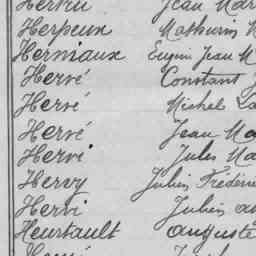 Herpeux Mathurin
Herniaux Eugène Jean M
Hervé Constant
Hervé Michel
Hervé Jean Ma
Hervé Jules Ma
Hervy Julien Frédéric
Hervi Julien au
Heurtault auguste